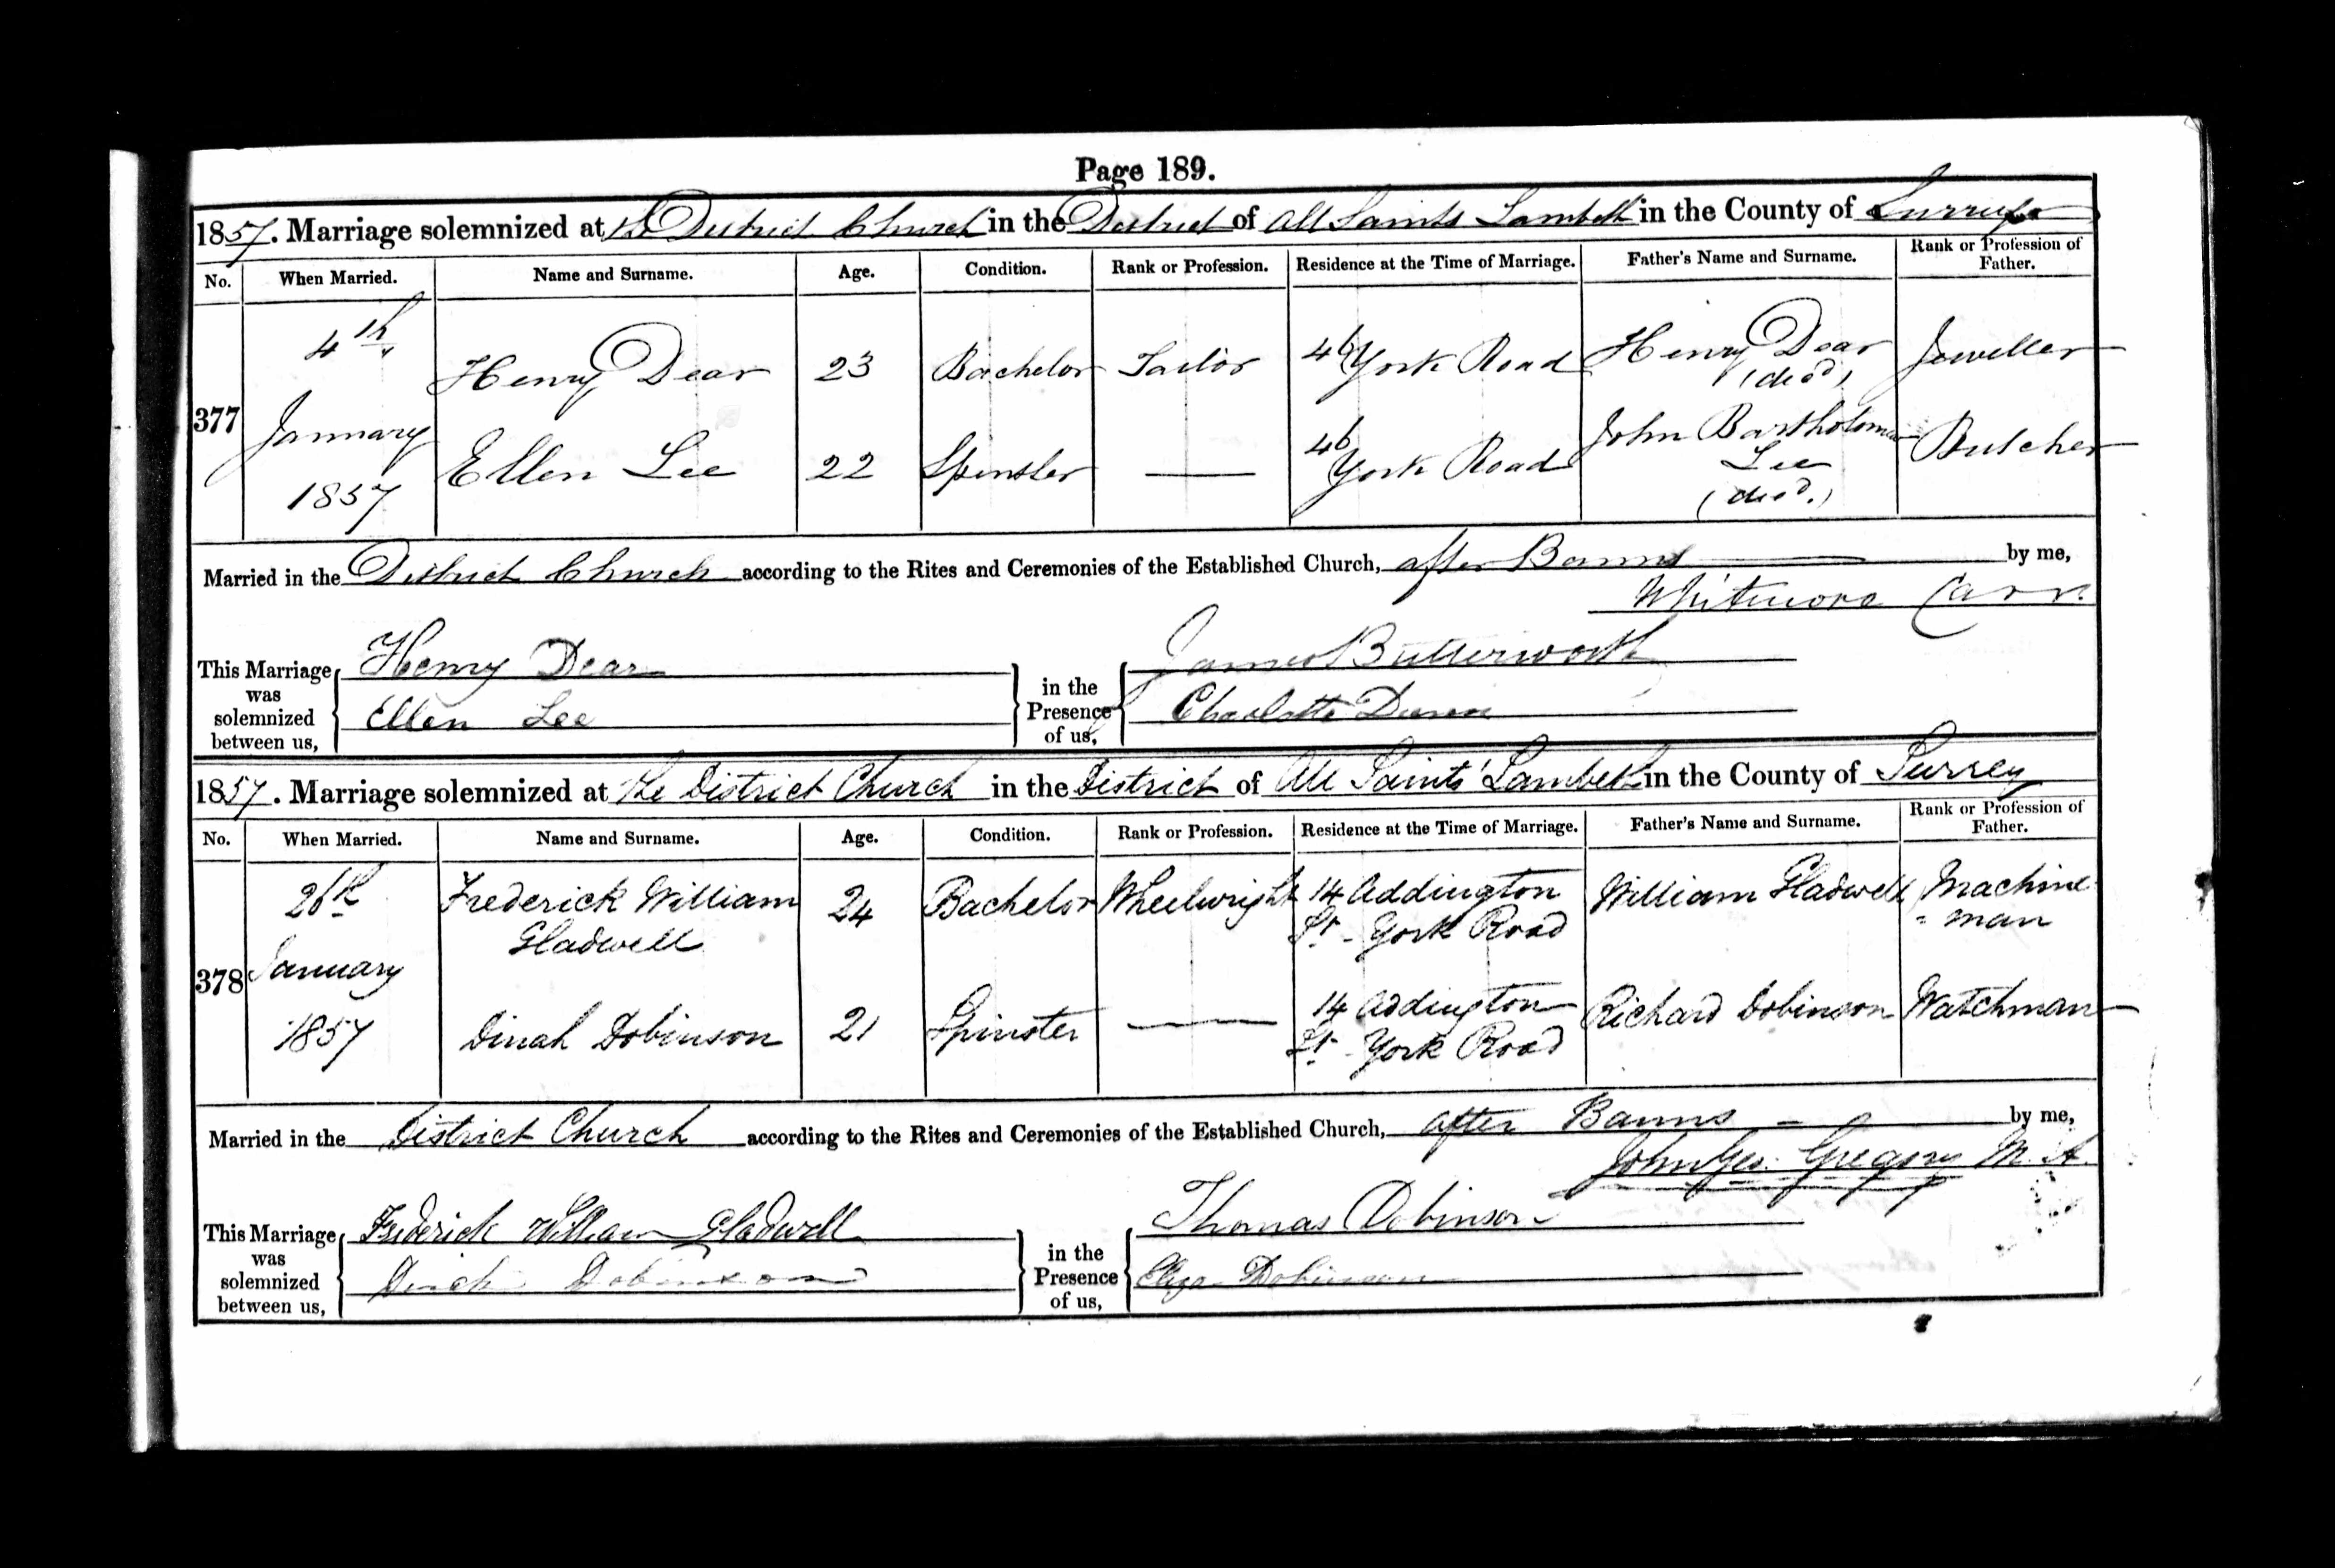 Page 189.
1857. Marriage solemnized at the District Church in the District of All Saints Lambeth in the County of Surrey
No. When Married. Name and Surname. Age. Condition. Rank or Profession. Residence at the Time of Marriage. Father's Name and Surname. Rank or Profession of Father.
377
4th January 1857
Henry Dear 23 Bachelor Tailor 46 York Road Henry Dear (decd) Jeweller
Ellen Lee 22 Spinster — 46 York Road John Bartholomew Lee (decd.) Butcher
Married in the District Church according to the Rites and Ceremonies of the Established Church, after Banns by me,
Whitmore Carr
This Marriage was solemnized between us,
Henry Dear
Ellen Lee
in the Presence of us,
James Butterworth
Charlotte
1857. Marriage solemnized at the District Church in the District of All Saints' Lambeth in the County of Surrey
No. When Married. Name and Surname. Age. Condition. Rank or Profession. Residence at the Time of Marriage. Father's Name and Surname. Rank or Profession of Father.
378
26th January 1857
Frederick William Gladwell 24 Bachelor Wheelwright 14 Addington St - York Road William Gladwell Machine = man
Dinah Dobinson 21 Spinster — 14 Addington St - York Road Richard Dobinson Watchman
Married in the District Church according to the Rites and Ceremonies of the Established Church, after Banns by me,
John Geo. Gregory M.A.
This Marriage was solemnized between us,
Frederick William Gladwell
Dinah Dobinson
in the Presence of us,
Thomas Dobinson
Eliza Dobinson